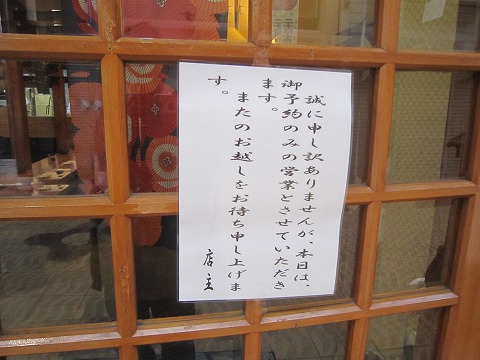 誠に申し訳ありませんが、本日は、
御予約のみの営業とさせていただき
ます。
またのお越しをお待ち申し上げま
す。
店主